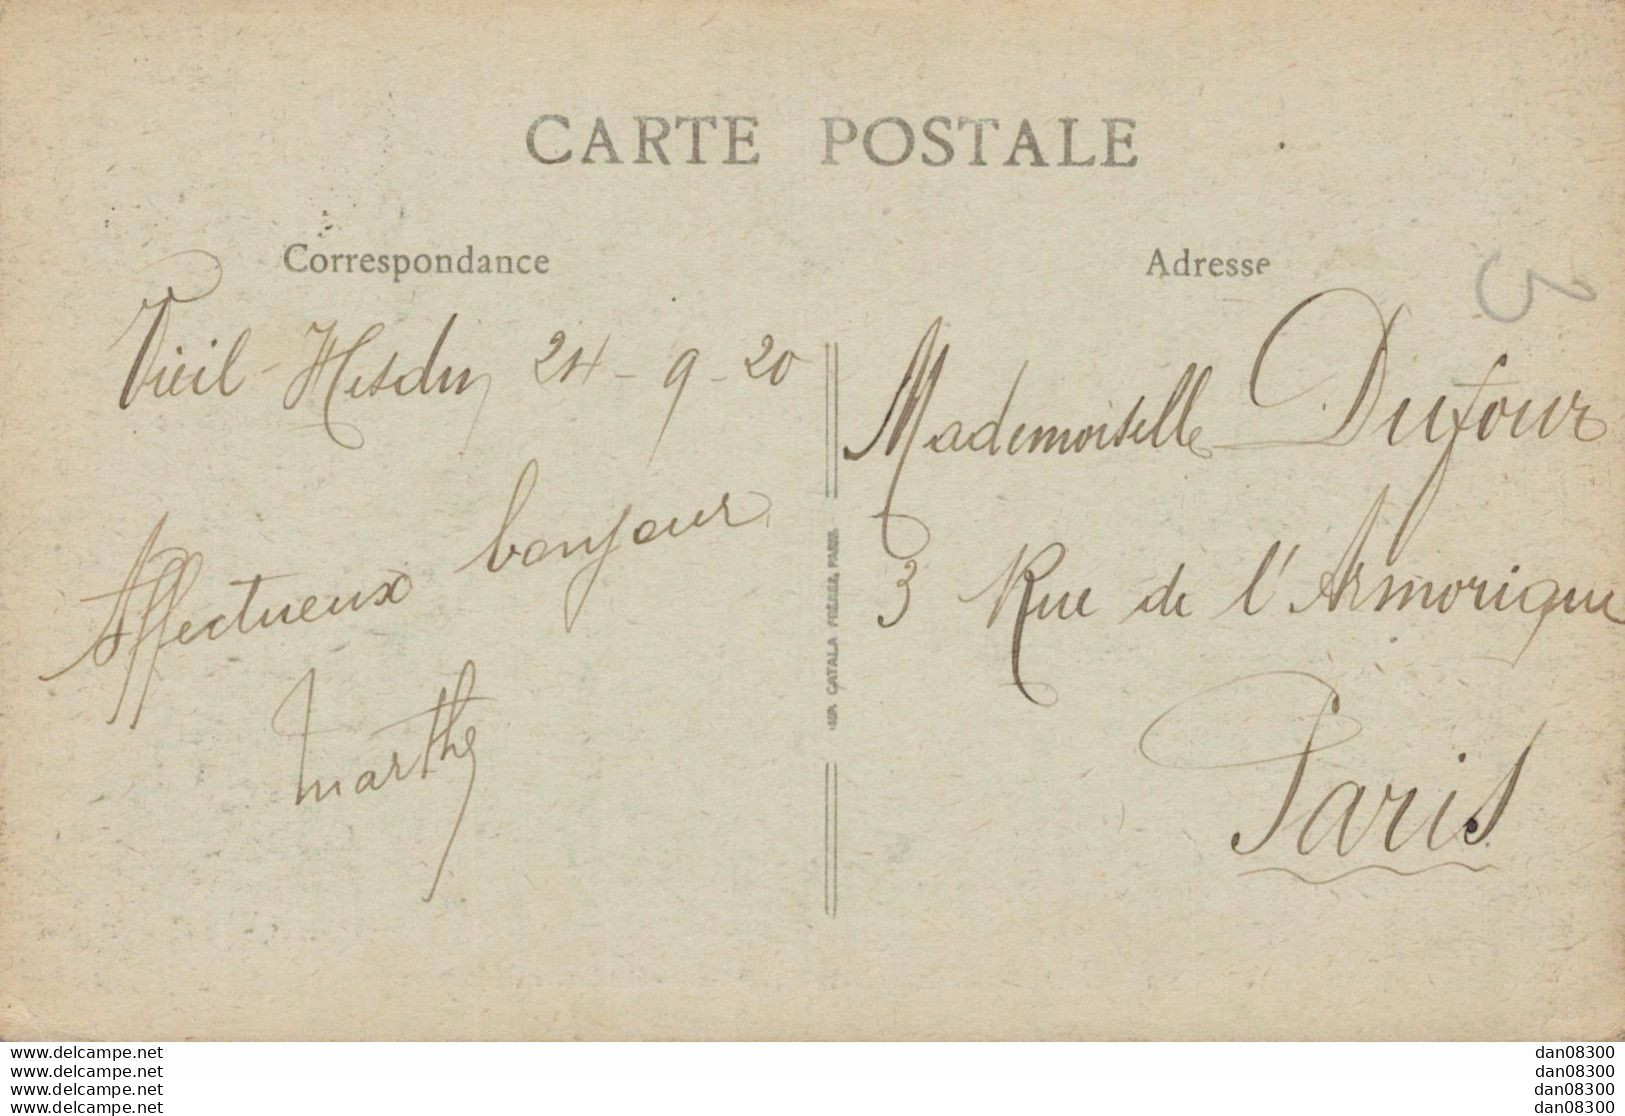 CARTE POSTALE
Correspondance
Vieil-Hesdin 24-9-20
Affectueux bonjour
Marthe
IMP. CATALA FRÈRES, PARIS
Adresse
3
Mademoiselle Dufour
3 Rue de l'Armorique
Paris
www.delcampe.net
www.delcampe.net
www.delcampe.net
www.delcampe.net
dan08300
dan08300
dan08300
dan08300